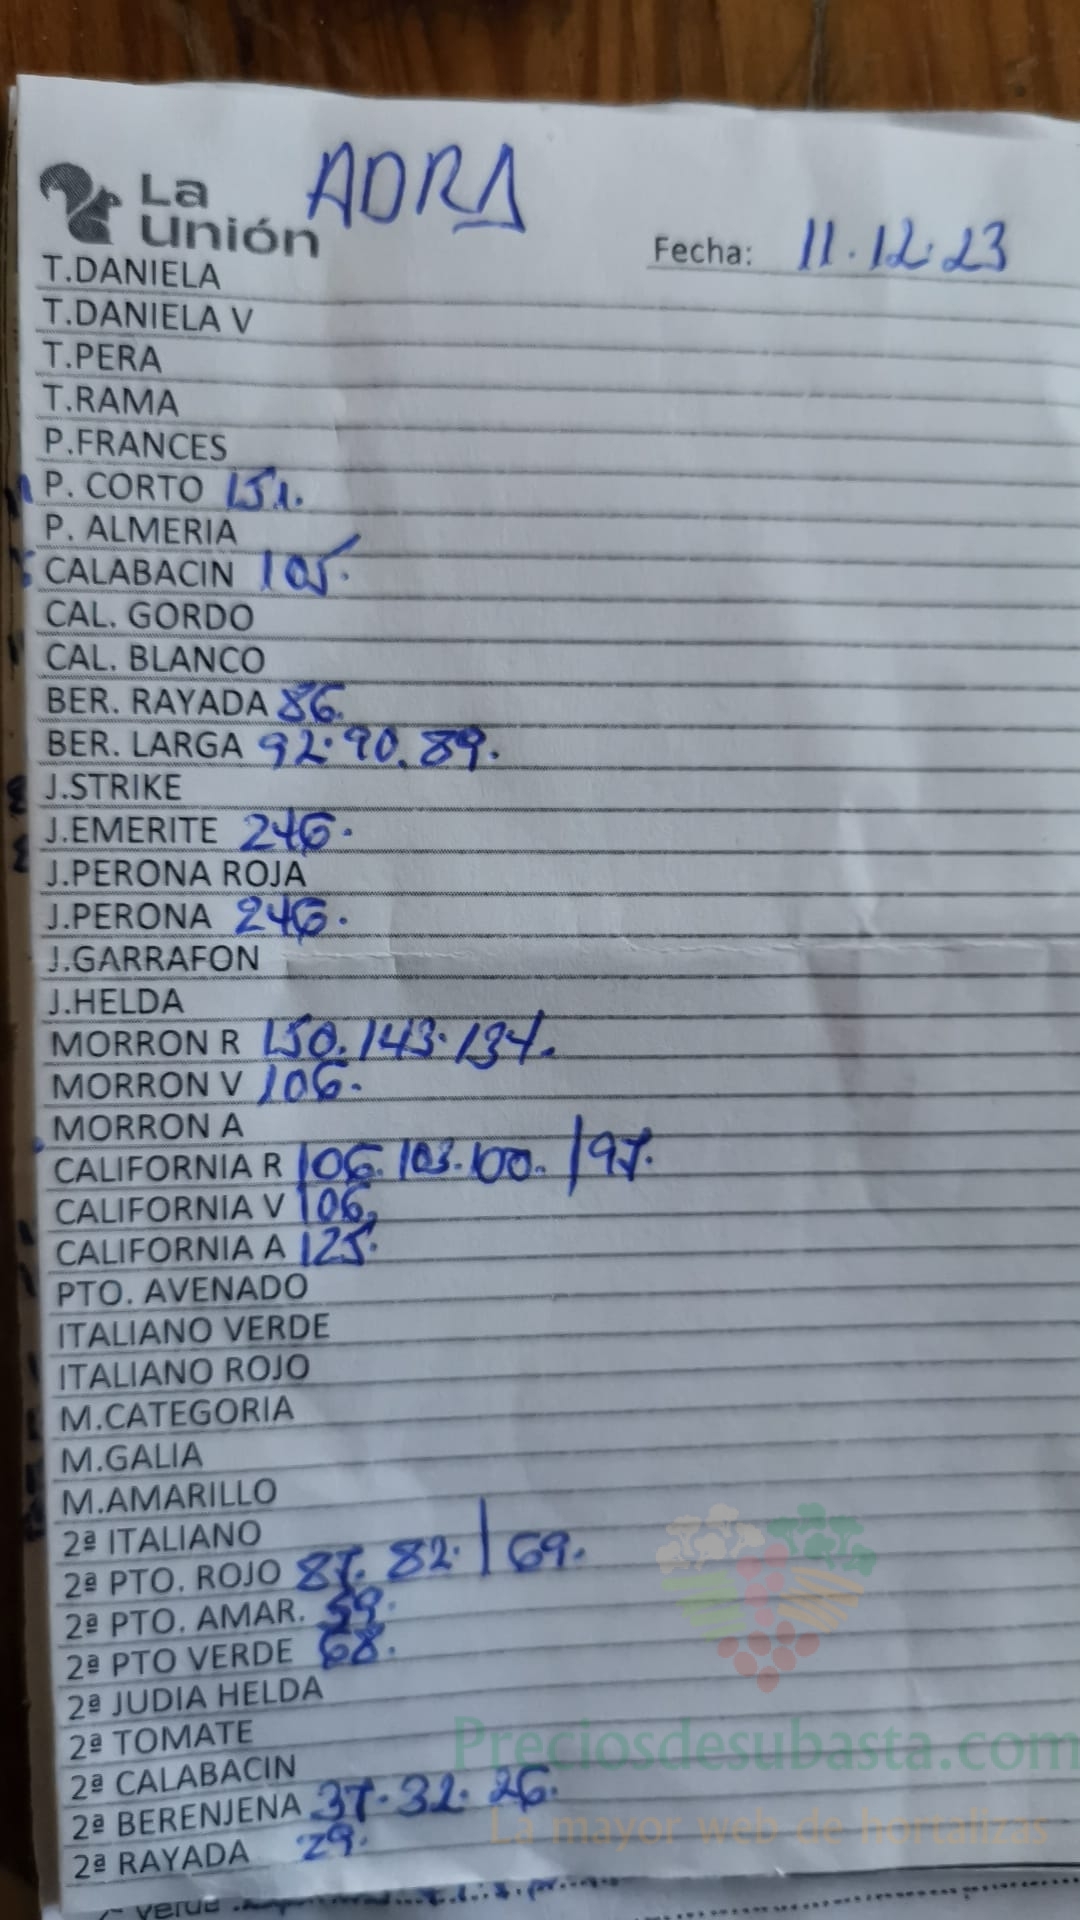 La Unión ADRA
Fecha: 11.12.23
T.DANIELA
T.DANIELA V
T.PERA
T.RAMA
P.FRANCES
P. CORTO 151.
P. ALMERIA
CALABACIN 105.
CAL. GORDO
CAL. BLANCO
BER. RAYADA 86.
BER. LARGA 92.90.89.
J.STRIKE
J.EMERITE 246.
J.PERONA ROJA
J.PERONA 246.
J.GARRAFON
J.HELDA
MORRON R 150.143.134.
MORRON V 106.
MORRON A
CALIFORNIA R 106.103.100. | 97.
CALIFORNIA V 106.
CALIFORNIA A 125.
PTO. AVENADO
ITALIANO VERDE
ITALIANO ROJO
M.CATEGORIA
M.GALIA
M.AMARILLO
2ª ITALIANO
2ª PTO. ROJO 87. 82. | 69.
2ª PTO. AMAR. 59.
2ª PTO VERDE 68.
2ª JUDIA HELDA
2ª TOMATE
2ª CALABACIN
2ª BERENJENA 37.32.26.
2ª RAYADA 29.
Preciosdesubasta.com
La mayor web de hortalizas